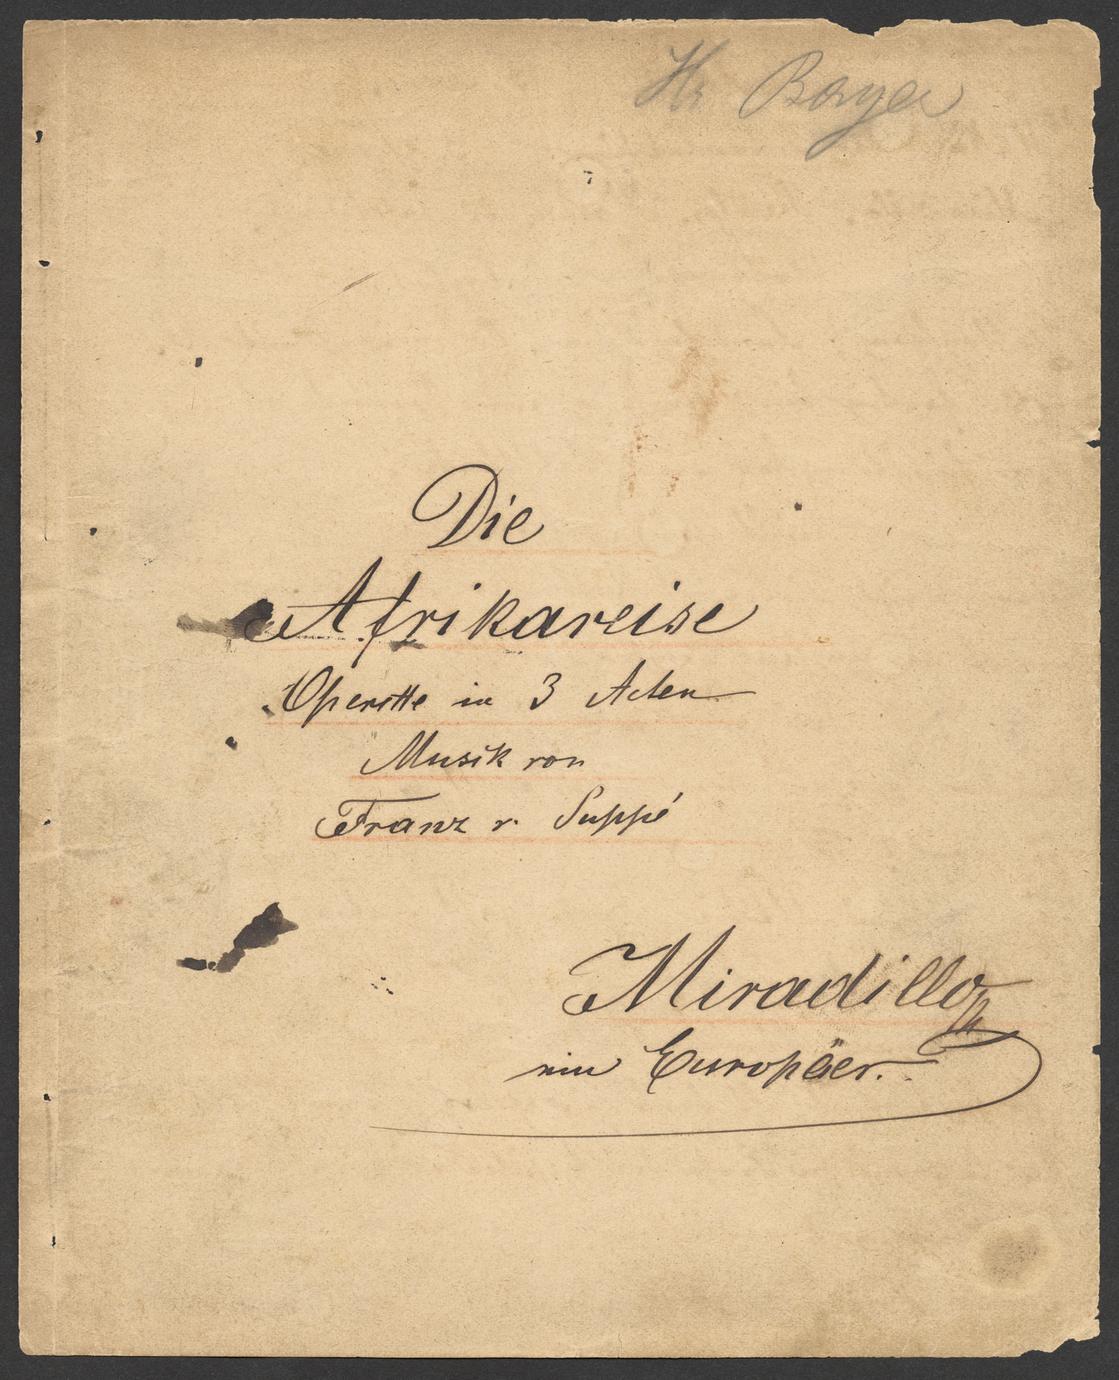 Hr Bayer
Die
Afrikareise
Operette in 3 Acten
Musik von
Franz v. Suppé
Miradillo
ein Europäer.